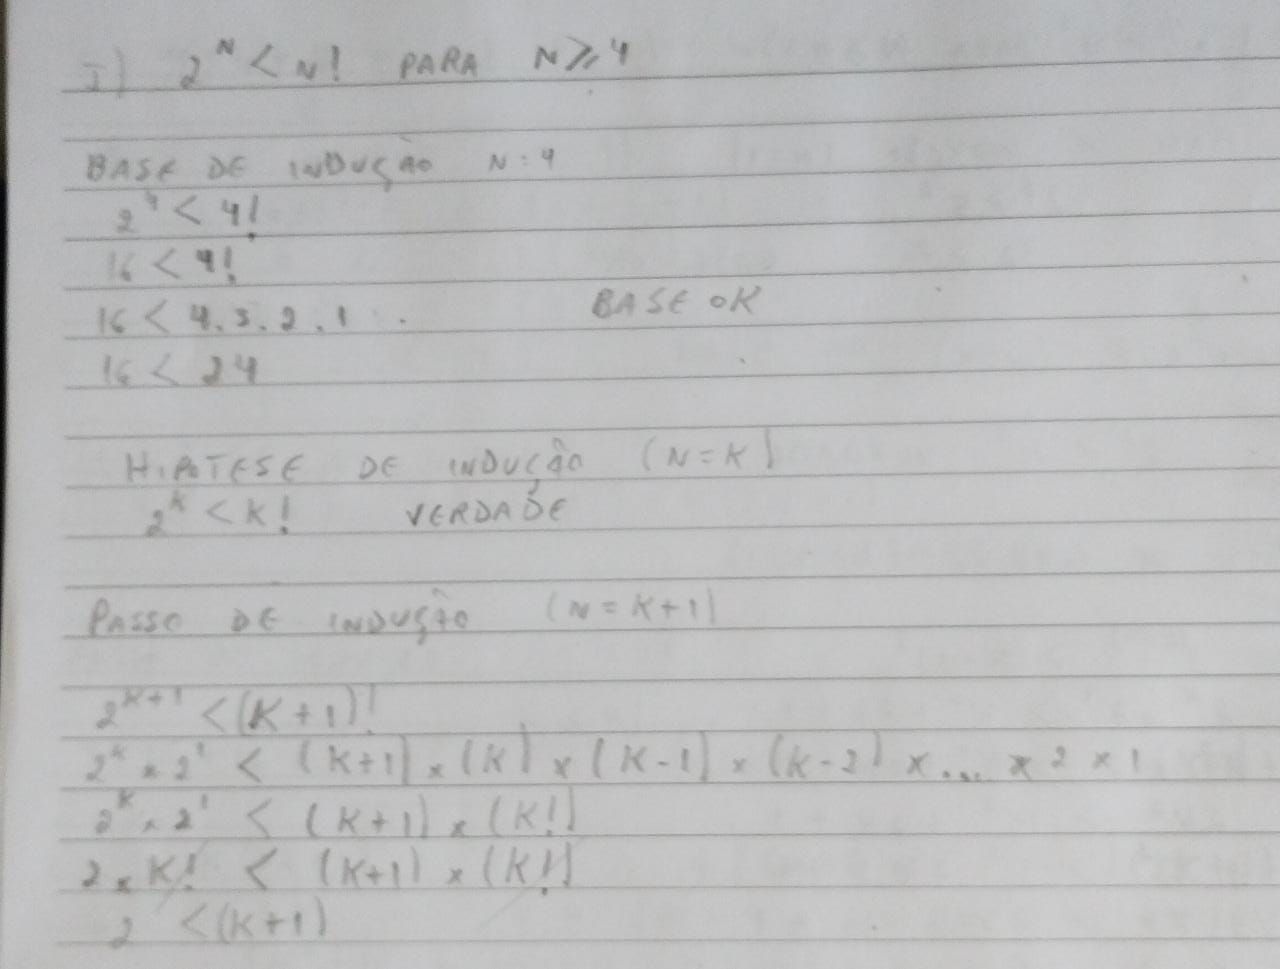 I) 2^N < N! PARA N ≥ 4
BASE DE INDUÇÃO N = 4
2^4 < 4!
16 < 4!
16 < 4.3.2.1 BASE OK
16 < 24
HIPOTESE DE INDUÇÃO (N = K)
2^K < K! VERDADE
PASSO DE INDUÇÃO (N = K+1)
2^K+1 < (K+1)!
2^K × 2^1 < (K+1) × (K) × (K-1) × (K-2) × ... × 2 × 1
2^K × 2^1 < (K+1) × (K!)
2 × K! < (K+1) × (K!)
2 < (K+1)